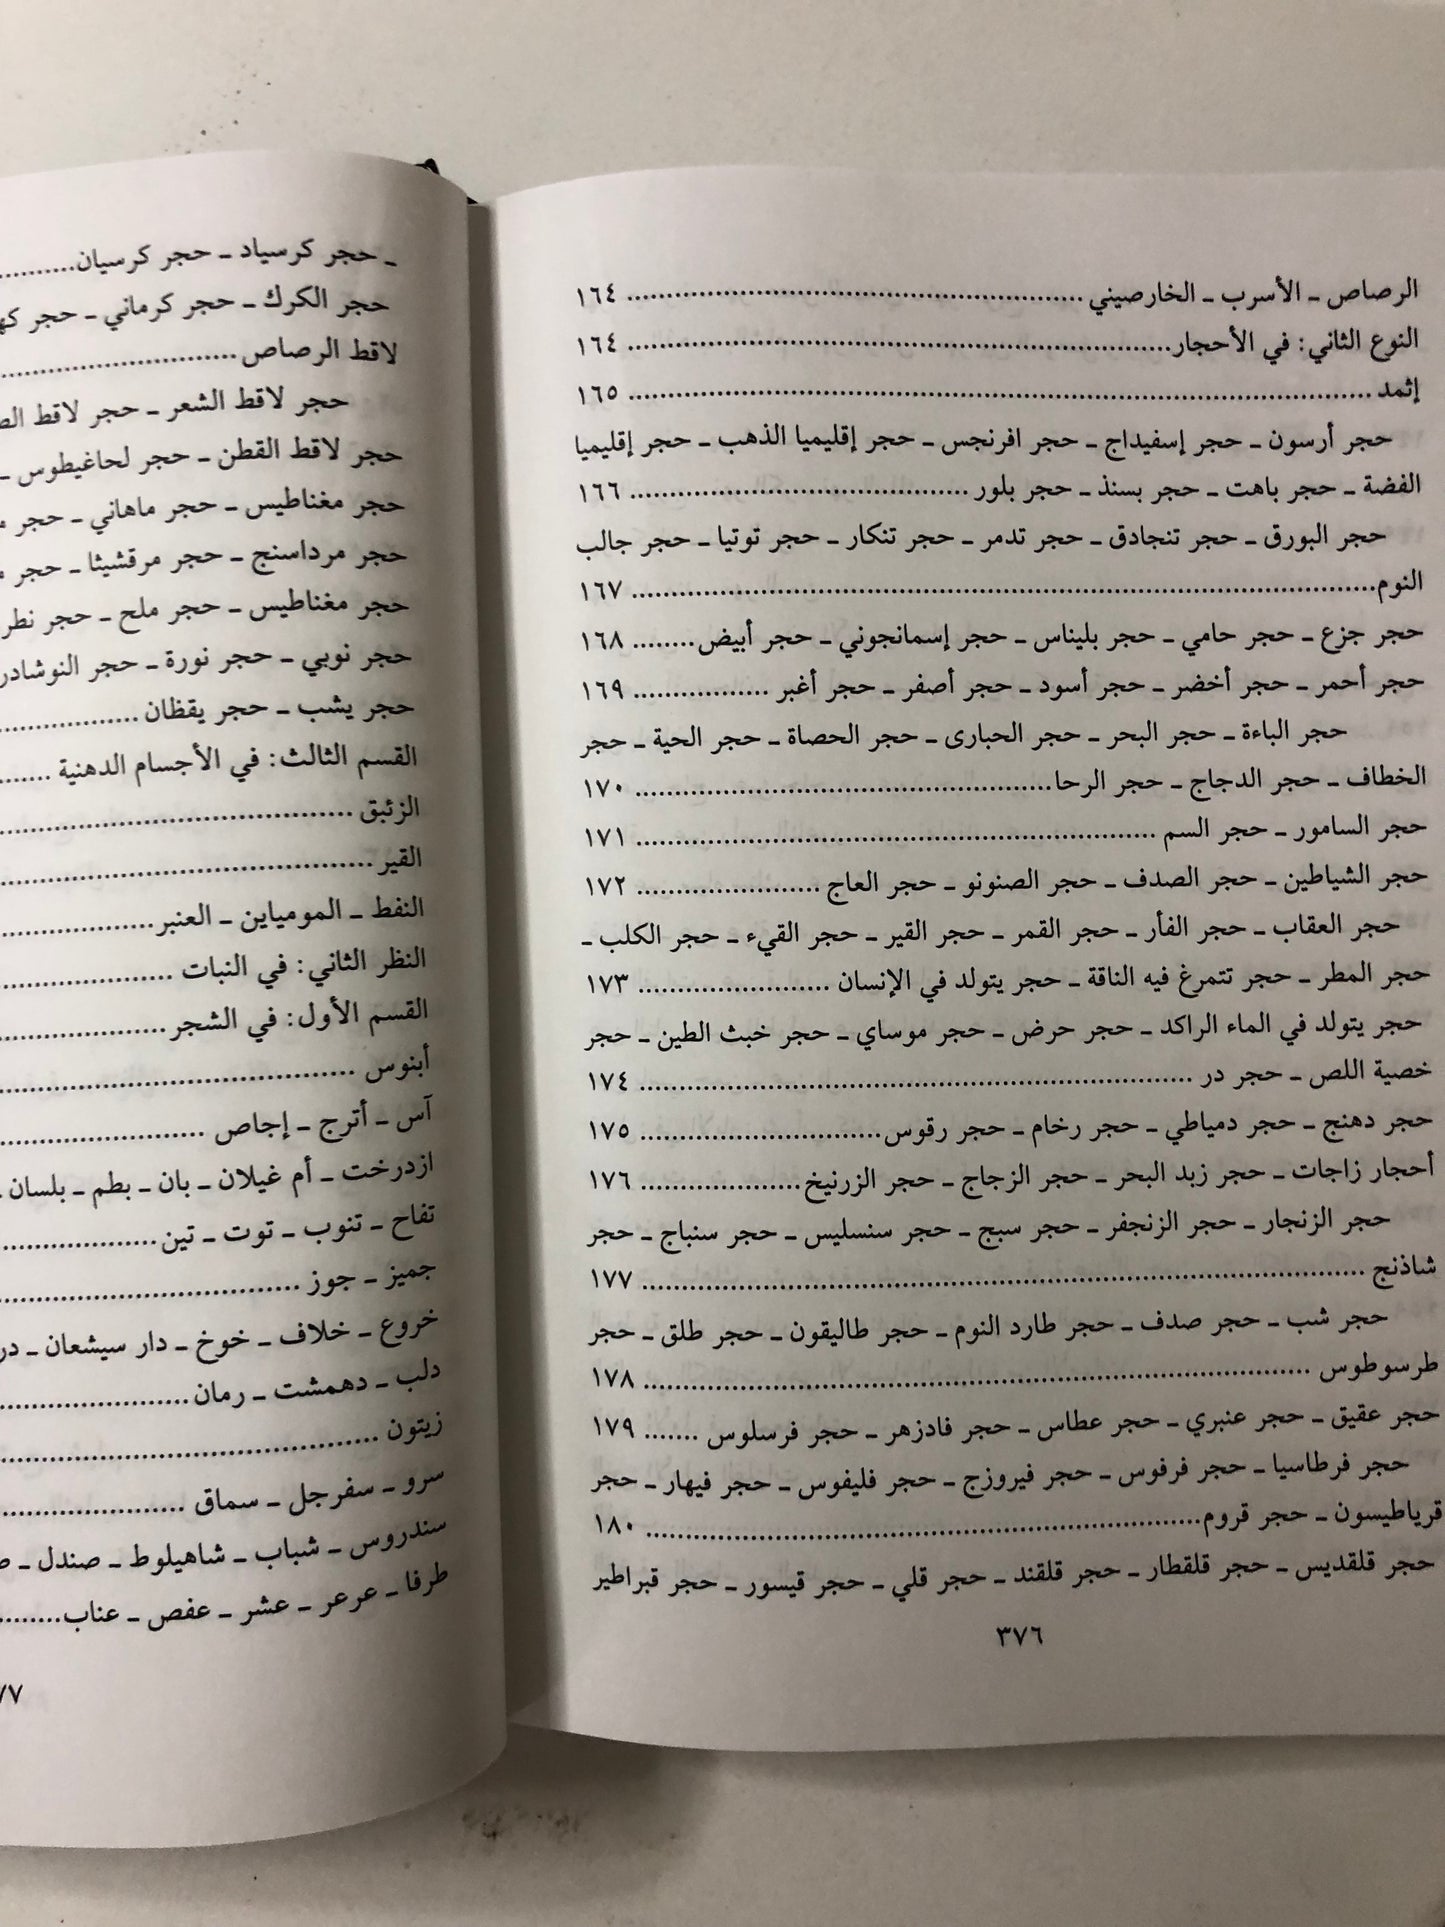 الرصاص ـ الأسرب ـ الخارصيني ........ ١٦٤
النوع الثاني: في الأحجار ........ ١٦٤
إثمد ........ ١٦٥
حجر أرسون ـ حجر إسفيداج ـ حجر افرنجس ـ حجر إقليميا الذهب ـ حجر إقليميا
الفضة ـ حجر باهت ـ حجر بسنذ ـ حجر بلور ........ ١٦٦
حجر البورق ـ حجر تنجادق ـ حجر تدمر ـ حجر تنكار ـ حجر توتيا ـ حجر جالب
النوم ........ ١٦٧
حجر جزع ـ حجر حامي ـ حجر بليناس ـ حجر إسمانجوني ـ حجر أبيض ........ ١٦٨
حجر أحمر ـ حجر أخضر ـ حجر أسود ـ حجر أصفر ـ حجر أغبر ........ ١٦٩
حجر الباءة ـ حجر البحر ـ حجر الحبارى ـ حجر الحصاة ـ حجر الحية ـ حجر
الخطاف ـ حجر الدجاج ـ حجر الرحا ........ ١٧٠
حجر السامور ـ حجر السم ........ ١٧١
حجر الشياطين ـ حجر الصدف ـ حجر الصنونو ـ حجر العاج ........ ١٧٢
حجر العقاب ـ حجر الفأر ـ حجر القمر ـ حجر القير ـ حجر القيء ـ حجر الكلب ـ
حجر المطر ـ حجر تتمرغ فيه الناقة ـ حجر يتولد في الإنسان ........ ١٧٣
حجر يتولد في الماء الراكد ـ حجر حرض ـ حجر موساي ـ حجر خبث الطين ـ حجر
خصية اللص ـ حجر در ........ ١٧٤
حجر دهنج ـ حجر دمياطي ـ حجر رخام ـ حجر رقوس ........ ١٧٥
أحجار زاجات ـ حجر زبد البحر ـ حجر الزجاج ـ حجر الزرنيخ ........ ١٧٦
حجر الزنجار ـ حجر الزنجفر ـ حجر سبج ـ حجر سنسليس ـ حجر سنباج ـ حجر
شاذنج ........ ١٧٧
حجر شب ـ حجر صدف ـ حجر طارد النوم ـ حجر طاليقون ـ حجر طلق ـ حجر
طرسوطوس ........ ١٧٨
حجر عقيق ـ حجر عنبري ـ حجر عطاس ـ حجر فادزهر ـ حجر فرسلوس ........ ١٧٩
حجر فرطاسيا ـ حجر فرفوس ـ حجر فيروزج ـ حجر فليفوس ـ حجر فيهار ـ حجر
قرياطيسون ـ حجر قروم ........ ١٨٠
حجر قلقديس ـ حجر قلقطار ـ حجر قلقند ـ حجر قلي ـ حجر قيسور ـ حجر قبراطير
٣٧٦
ـ حجر كرسياد ـ حجر كرسيان ........
حجر الكرك ـ حجر كرماني ـ حجر
لاقط الرصاص ........
حجر لاقط الشعر ـ حجر لاقط
حجر لاقط القطن ـ حجر لحاغيطوس ـ
حجر مغناطيس ـ حجر ماهاني ـ حجر
حجر مرداسنج ـ حجر مرقشيثا ـ حجر
حجر مغناطيس ـ حجر ملح ـ حجر
حجر نوبي ـ حجر نورة ـ حجر النوشادر
حجر يشب ـ حجر يقظان ........
القسم الثالث: في الأجسام الدهنية ........
الزئبق ........
القير ........
النفط ـ المومياين ـ العنبر ........
النظر الثاني: في النبات ........
القسم الأول: في الشجر ........
أبنوس ........
آس ـ أترج ـ إجاص ........
ازدرخت ـ أم غيلان ـ بان ـ بطم ـ بلسان ـ
تفاح ـ تنوب ـ توت ـ تين ........
جميز ـ جوز ........
خروع ـ خلاف ـ خوخ ـ دار سيشعان ـ
دلب ـ دهمشت ـ رمان ........
زيتون ........
سرو ـ سفرجل ـ سماق ........
سندروس ـ شباب ـ شاهيلوط ـ صندل ـ
طرفا ـ عرعر ـ عشر ـ عفص ـ عناب ........